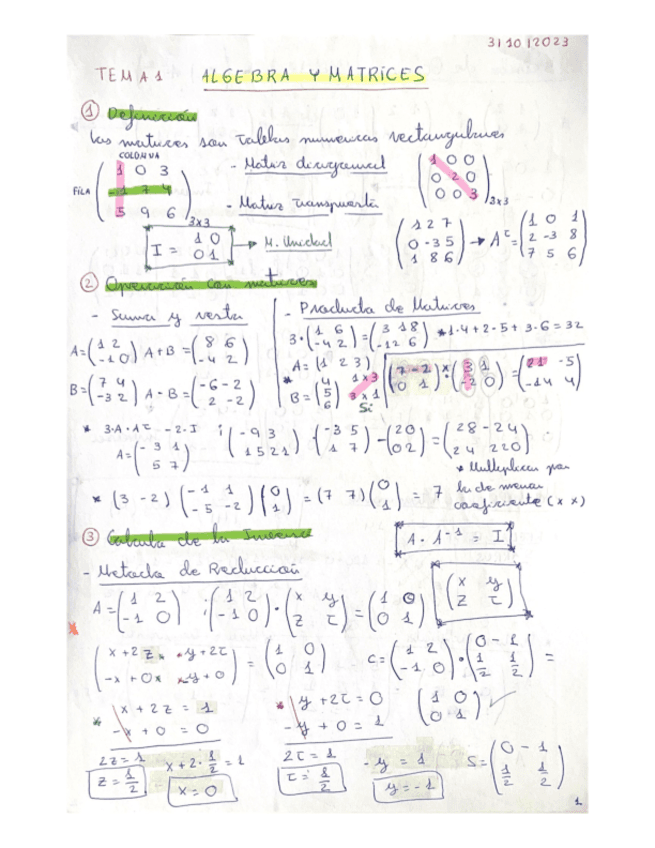 31 10 12023
TEMA 1 ALGEBRA Y MATRICES
① Definición
Las matrices son tablas numericas rectangulares
COLONVA
FILA
( 1 0 3
-1 7 4
5 9 6 ) 3x3
- Matriz diagonal
( 1 0 0
0 2 0
0 0 3 ) 3x3
- Matriz Transpuesta
( 1 2 7
0 -3 5
1 8 6 ) → Aᵗ = ( 1 0 1
2 -3 8
7 5 6 )
I = 1 0
0 1 → M. Unidad
② Operación con matrices
- Suma y resta
A = ( 1 2
-1 0 ) A+B = ( 8 6
-4 2 )
B = ( 7 4
-3 2 ) A-B = ( -6 -2
2 -2 )
- Producto de Matrices
3·( 1 6
-4 2 ) = ( 3 18
-12 6 ) *1·4+2·5+3·6=32
* A = (1 2 3) 1x3
B = ( 4
5
6 ) 3x1
Si
( 7 -2
0 1 ) · ( 3 1
-2 0 ) = ( 21 -5
-14 4 )
* 3·A·Aᵗ - 2·I
A = ( -3 1
5 7 )
( -9 3
15 21 ) · ( -3 5
1 7 ) - ( 2 0
0 2 ) = ( 28 -24
24 220 )
* Multiplicar por
la de menor
coeficiente (x x)
* (3 -2) ( -1 1
-5 -2 ) ( 0
1 ) = (7 7) ( 0
1 ) = 7
③ Calculo de la Inversa
A · A⁻¹ = I
- Metodo de Reducción
( x y
z t )
A = ( 1 2
-1 0 ) ( 1 2
-1 0 ) · ( x y
z t ) = ( 1 0
0 1 )
( x+2z y+2t
-x+0 -y+0 ) = ( 1 0
0 1 )
C = ( 1 2
-1 0 ) · ( 0 -1
1/2 1/2 ) =
( 1 0
0 1 ) ✓
* x + 2z = 1
-x + 0 = 0
2z = 1
z = 1/2
x + 2·1/2 = 1
x = 0
* y + 2t = 0
-y + 0 = 1
2t = 1
t = 1/2
-y = 1
y = -1
S = ( 0 -1
1/2 1/2 )
1